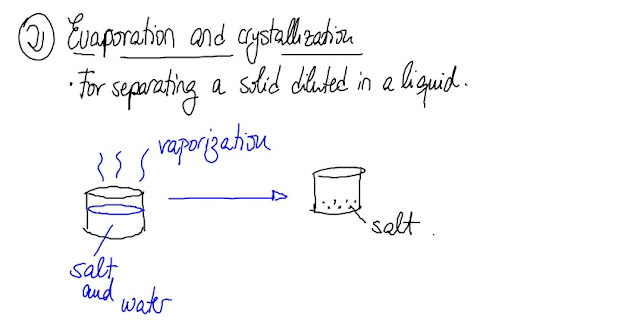 2) Evaporation and crystallization
· For separating a solid diluted in a liquid.
vaporization
salt
and water
salt.